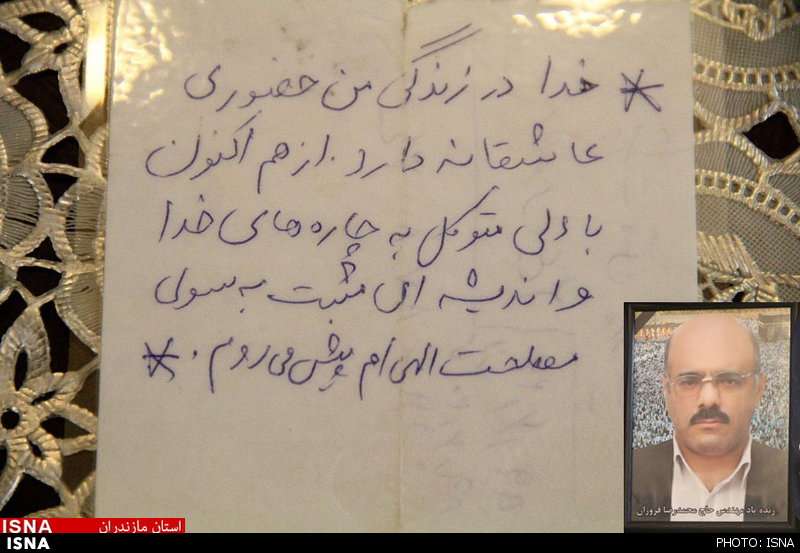 * خدا در زندگی من حضوری
عاشقانه دارد. از هم اکنون
با دلی متوکل به چاره های خدا
و اندیشه ای مثبت به سوی
مصلحت الهی ام پیش می روم. *
زنده یاد مهندس حاج محمدرضا فروزان
ISNA استان مازندران
ISNA PHOTO: ISNA